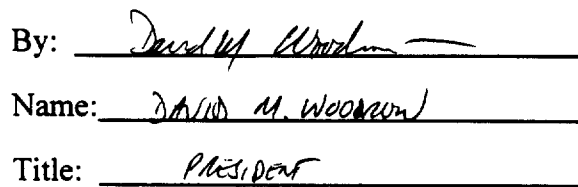 By: David M Woodrow
Name: DAVID M. WOODROW
Title: PRESIDENT